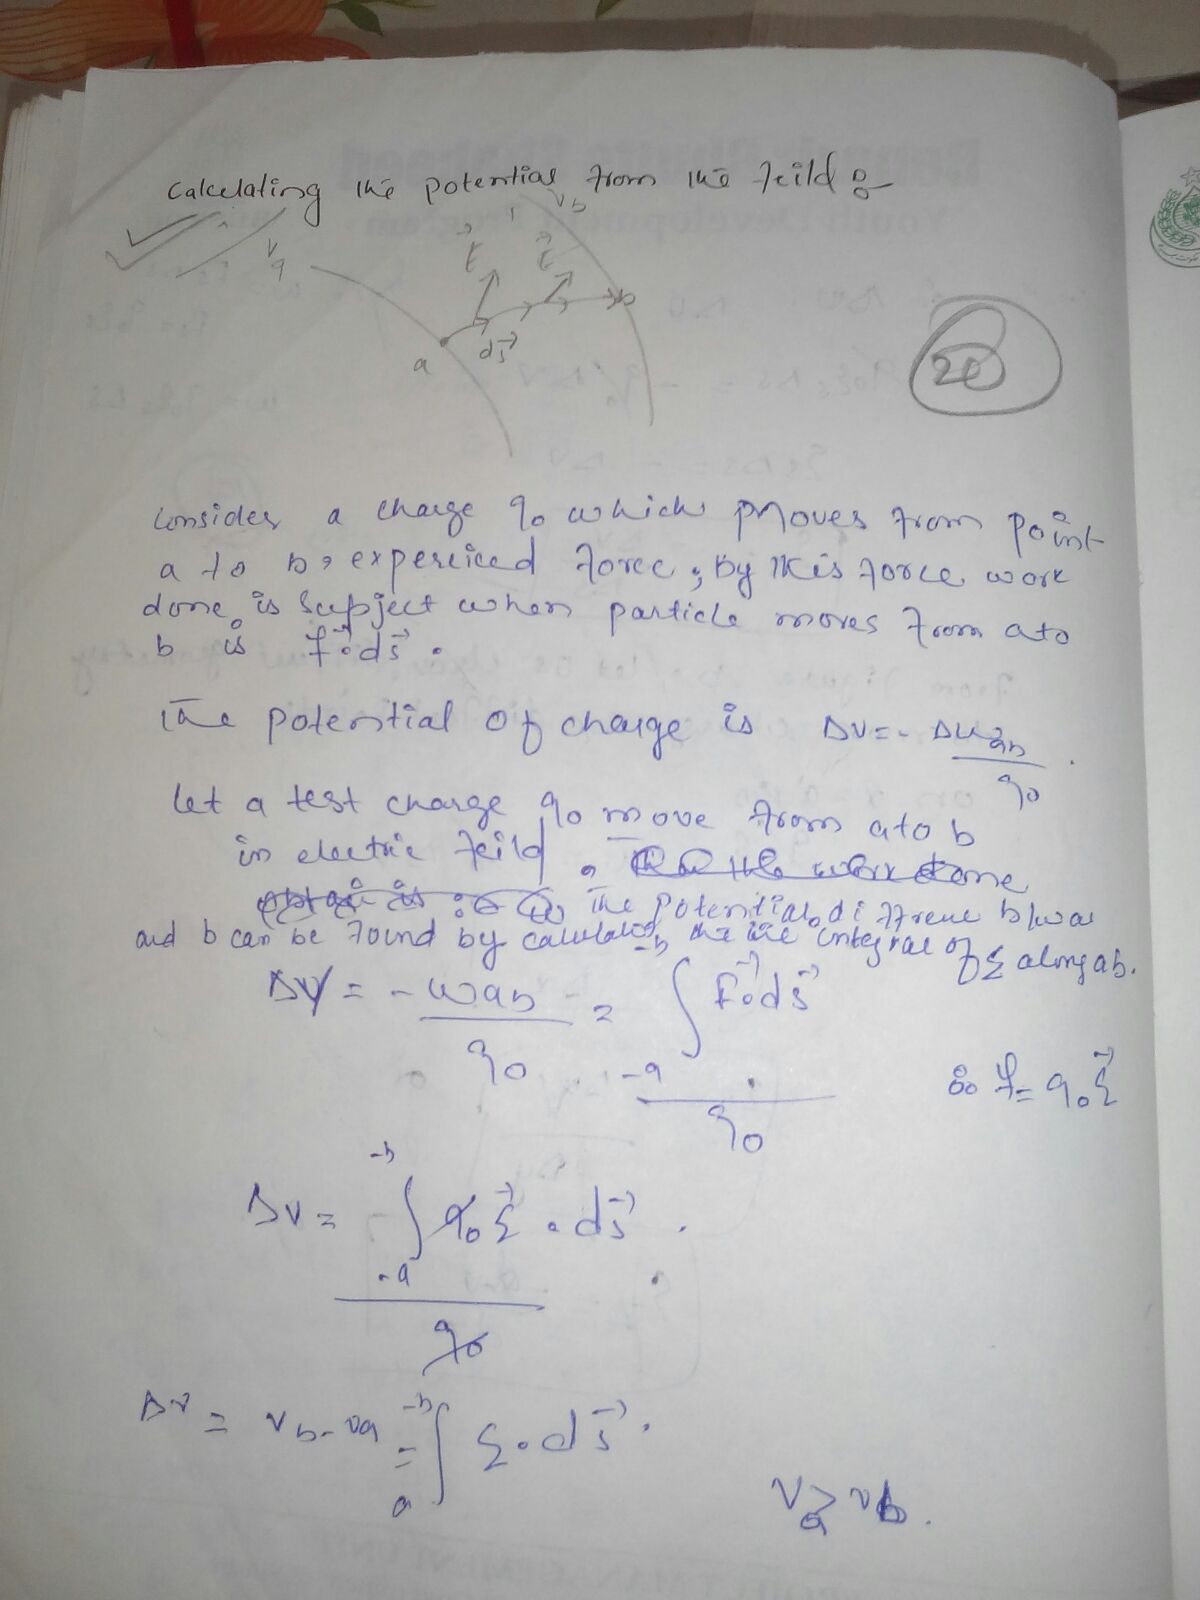 Calculating the potential from the feild :-
Va
E
E
Vb
a
ds
b
20
Consider a charge q0 which moves from point
a to b, expericed force, by this force work
done is subject when particle moves from a to
b is F.ds.
The potential of charge is ΔV = - ΔWab / q0
Let a test charge q0 move from a to b
in electric feild.
The potential diffrene b/w a
and b can be found by calculating the line integral of E along ab.
ΔV = -Wab / q0 = ∫ F.ds / q0
-b
-a
∴ F = q0 E
ΔV = -∫ q0 E . ds / q0
-b
-a
ΔV = Vb - Va = ∫ E . ds.
-b
a
Va > Vb.